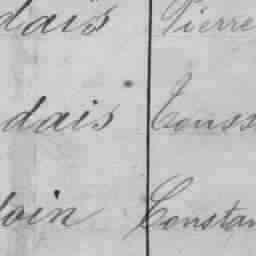 dais Pierre
dais Touss
doin Constan